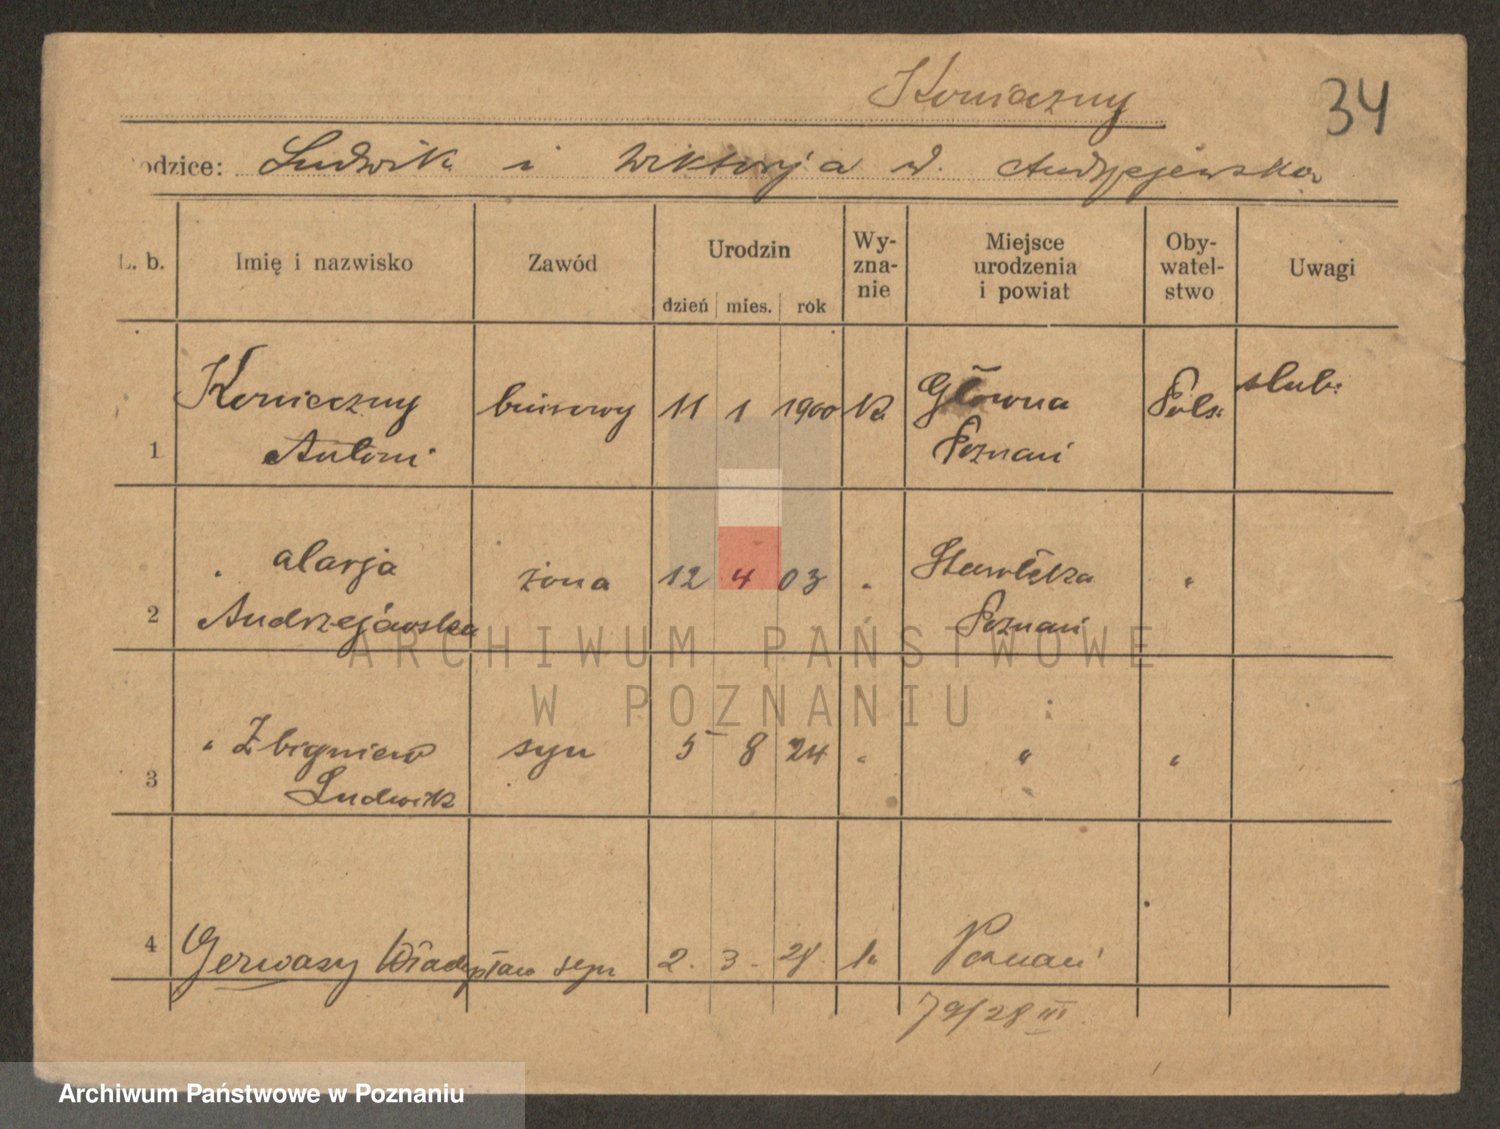 Konieczny 34
odzice: Ludwik i Wiktorja d. Andrzejewska
L. b. Imię i nazwisko Zawód Urodzin dzień mies. rok Wy-zna-nie Miejsce urodzenia i powiat Oby-watel-stwo Uwagi
1 Konieczny Antoni biurowy 11 1 1900 k. Główna Poznań Pols. slub.
2 " Marja Andrzejewska żona 12 4 03 " Starołęka Poznań "
3 " Zbigniew Ludwik syn 5 8 24 " " "
4 Gerwazy Władysław syn 2. 3. 28. k. Poznań
79/28 III
ARCHIWUM PAŃSTWOWE
W POZNANIU
Archiwum Państwowe w Poznaniu